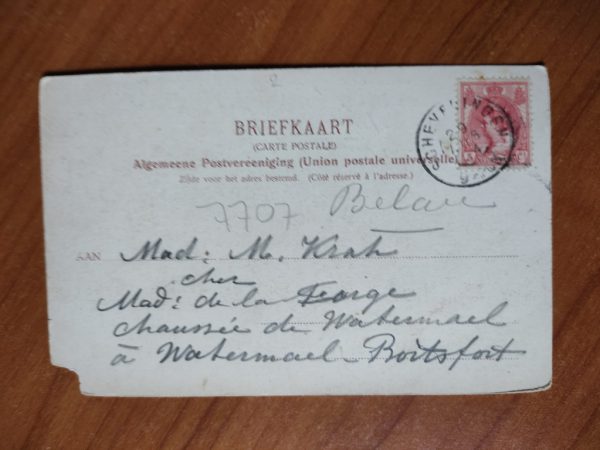 2
BRIEFKAART
(CARTE POSTALE)
Algemeene Postvereeniging (Union postale universelle)
Zijde voor het adres bestemd. (Côté réservé à l'adresse.)
SCHEVENINGEN
7707
AAN Mad: M. Krah
cher
Mad: de la
chaussée de Watermael
à Watermael-Boitsfort